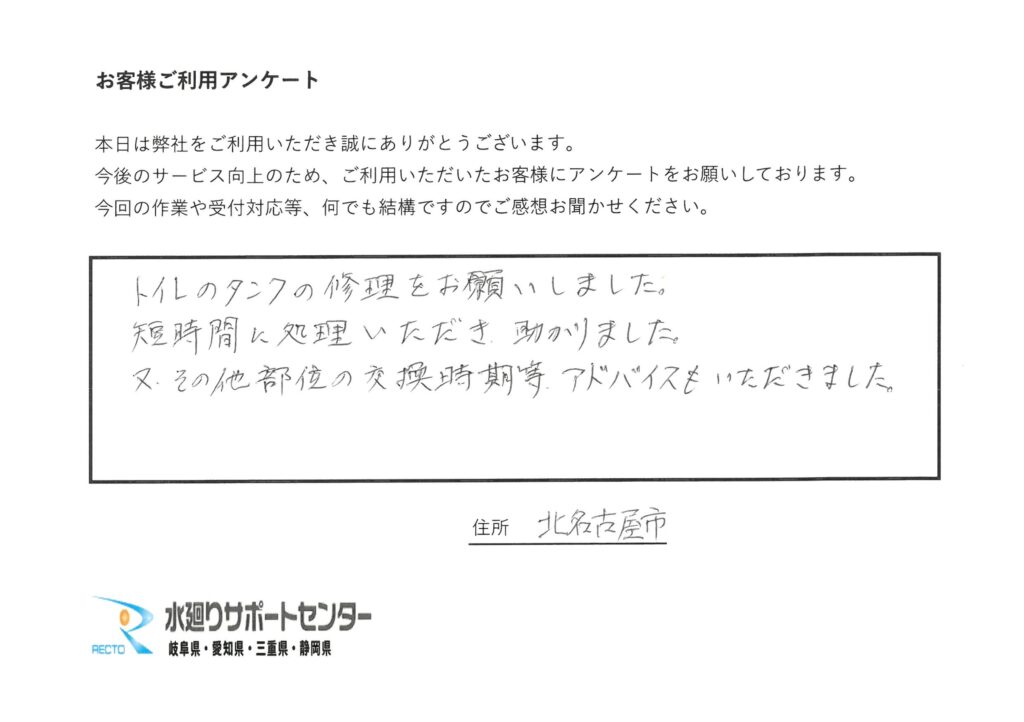 お客様ご利用アンケート
本日は弊社をご利用いただき誠にありがとうございます。
今後のサービス向上のため、ご利用いただいたお客様にアンケートをお願いしております。
今回の作業や受付対応等、何でも結構ですのでご感想お聞かせください。
トイレのタンクの修理をお願いしました。
短時間に処理いただき、助かりました。
又、その他部位の交換時期等、アドバイスもいただきました。
住所 北名古屋市
RECTO 水廻りサポートセンター
岐阜県・愛知県・三重県・静岡県